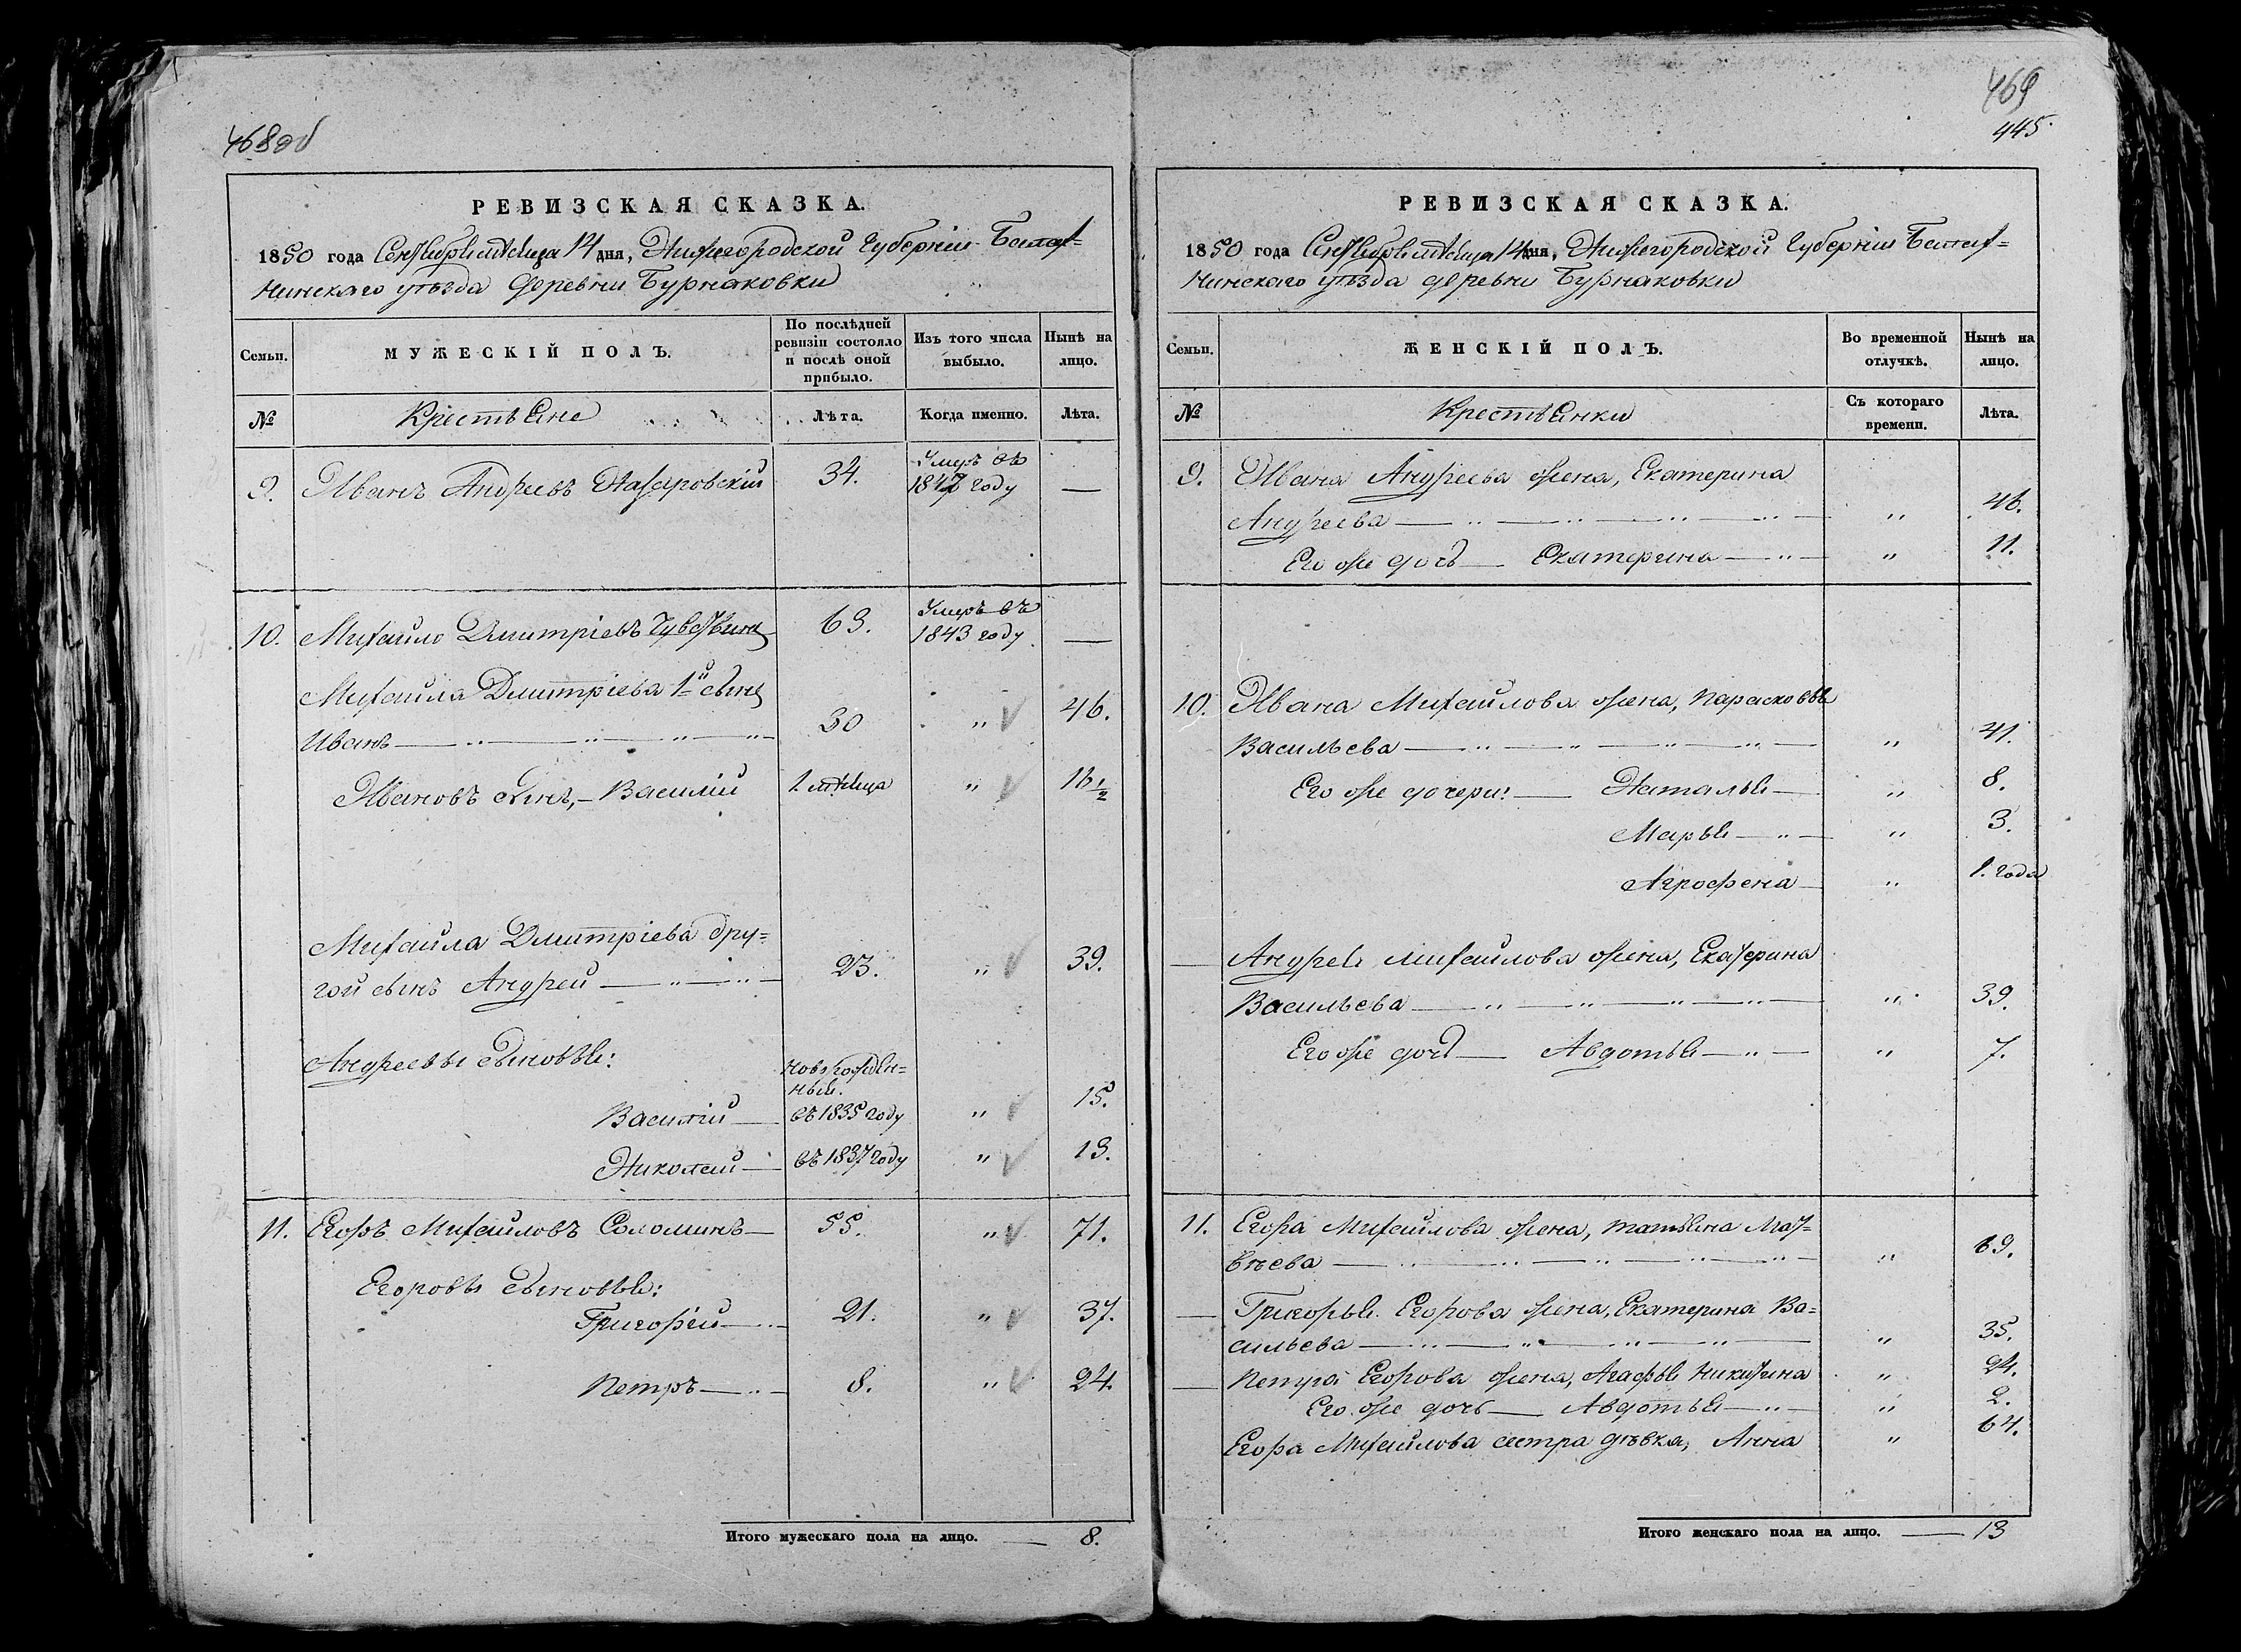 468об
РЕВИЗСКАЯ СКАЗКА.
1850 года Сентября мѣсяца 14 дня, Нижегородской Губерніи Балах=
нинскаго уѣзда деревни Бурнаковки
Семьи.
МУЖЕСКІЙ ПОЛЪ.
По послѣдней ревизіи состояло и послѣ оной прибыло.
Изъ того числа выбыло.
Нынѣ на лицо.
№
Крестьяне
Лѣта.
Когда именно.
Лѣта.
9. Иванъ Андреевъ Назаровскій 34. Умеръ въ 1847 году —
10. Михайло Дмитріевъ 63. Умеръ въ 1843 году —
Михайла Дмитріева 1й сынъ
Иванъ — 30 „ 46.
Ивановъ сынъ, – Василій 1 мѣсяца „ 16 1/2
Михайла Дмитріева дру=
гой сынъ Андрей — 23. „ 39.
Андреевы сыновья:
Новорожден=
ныя.
Василій — въ 1835 году „ 15.
Николай — въ 1837 году „ 13.
11. Егоръ Михайловъ Соломинъ — 55. „ 71.
Егоровы сыновья:
Григорій — 21. „ 37.
Петръ — 8. „ 24.
Итого мужескаго пола на лицо. — 8.
469
445.
РЕВИЗСКАЯ СКАЗКА.
1850 года Сентября мѣсяца 14 дня, Нижегородской Губерніи Балах=
нинскаго уѣзда деревни Бурнаковки
Семьи.
ЖЕНСКІЙ ПОЛЪ.
Во временной отлучкѣ.
Нынѣ на лицо.
№
Крестьянки
Съ котораго времени.
Лѣта.
9. Ивана Андреева жена, Екатерина
Андреева — „ 46.
Его же дочь — Екатерина — „ 11.
10. Ивана Михайлова жена, Парасковья
Васильева — „ 41.
Его же дочери: — Наталья — „ 8.
Марья — „ 3.
Агрофена — „ 1. года
— Андрея Михайлова жена, Екатерина
Васильева — „ 39.
Его же дочь — Авдотья — „ 7.
11. Егора Михайлова жена, Татьяна Мат=
вѣева — „ 69.
— Григорья Егорова жена, Екатерина Ва=
сильева — „ 35.
— Петра Егорова жена, Агафья Никитина „ 24.
Его же дочь — Авдотья — „ 2.
Егора Михайлова сестра дѣвка, Анна „ 64.
Итого женскаго пола на лицо. — 13